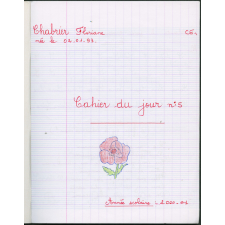 Chabrier Floriane CE₁
née le 02.01.93.
Cahier du jour n°5
Année scolaire : 2000-01